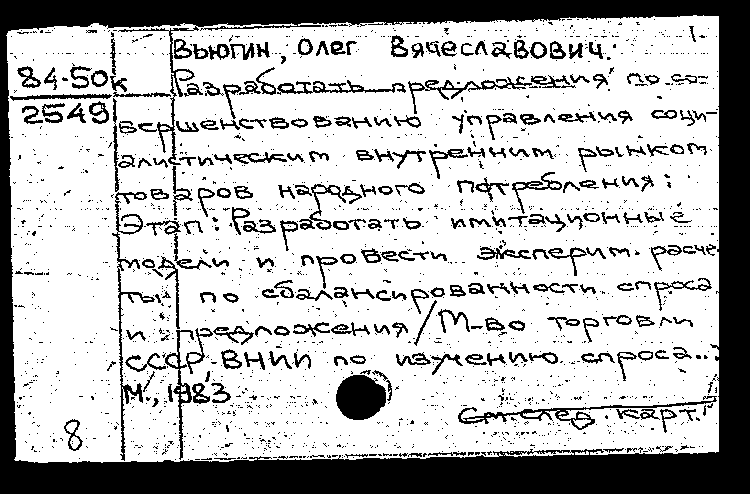 1.
Вьюгин, Олег Вячеславович.
84-50к
2549
Разработать предложения по со-
вершенствованию управления соци-
алистическим внутренним рынком
товаров народного потребления:
Этап: Разработать имитационные
модели и провести эксперим. расче-
ты по сбалансированности спроса
и предложения/М-во торговли
СССР, ВНИИ по изучению спроса...
М., 1983
См. след. карт.
8